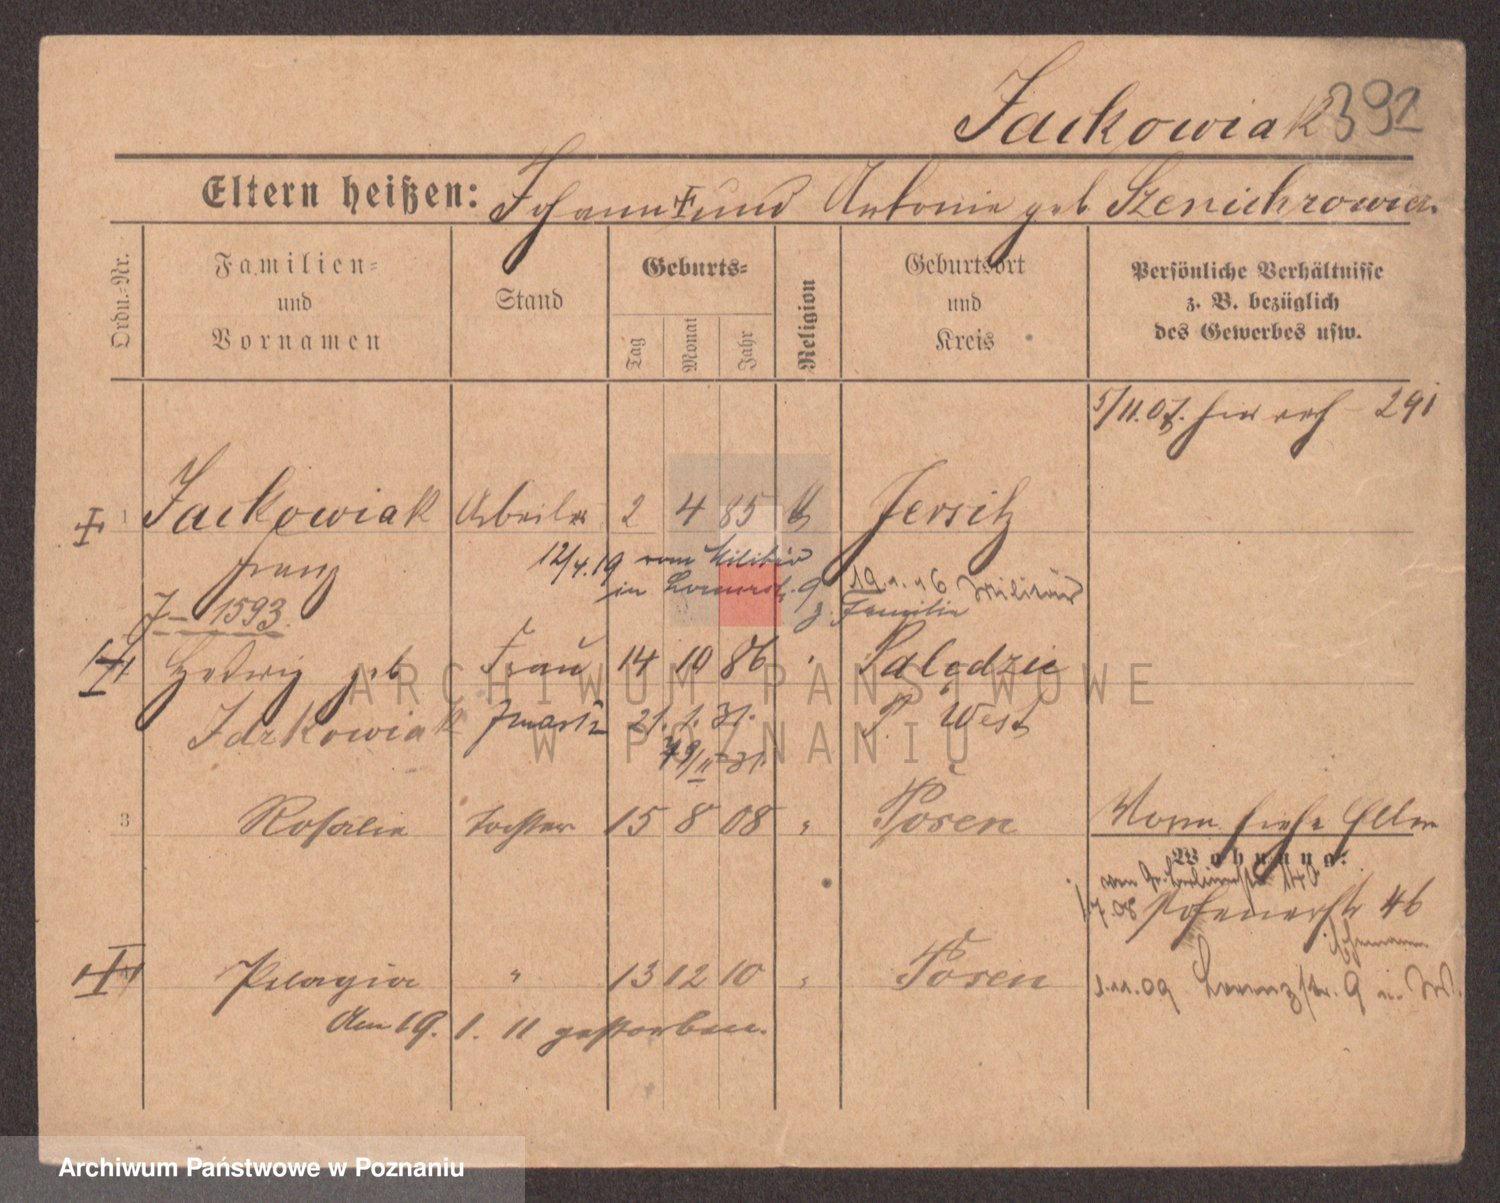 Jackowiak 392
Eltern heißen: Johann + und Antonie geb Szenichrowicz.
Ordn.-Nr.
Familien-
und
Vornamen
Stand
Geburts-
Tag
Monat
Jahr
Religion
Geburtsort
und
Kreis
Persönliche Verhältnisse
z. B. bezüglich
des Gewerbes usw.
5/11.07. 291
1 Jackowiak Arbeiter 2 4 85 k Jersitz
Franz
12/4.19 vom Militär
19.1.16 Militär
z. Familie
J- 1593.
Hedwig geb Frau 14 10 86 " Palędzie
Jackowiak P. West
21. 1. 31.
3 Rosalie Tochter 15 8 08 " Posen
Wohnung:
1.7.08 Posenerstr 46
Pelagia " 13 12 10 " Posen
1.11.09 9
Am 19. 1. 11 gestorben.
ARCHIWUM PAŃSTWOWE
W POZNANIU
Archiwum Państwowe w Poznaniu